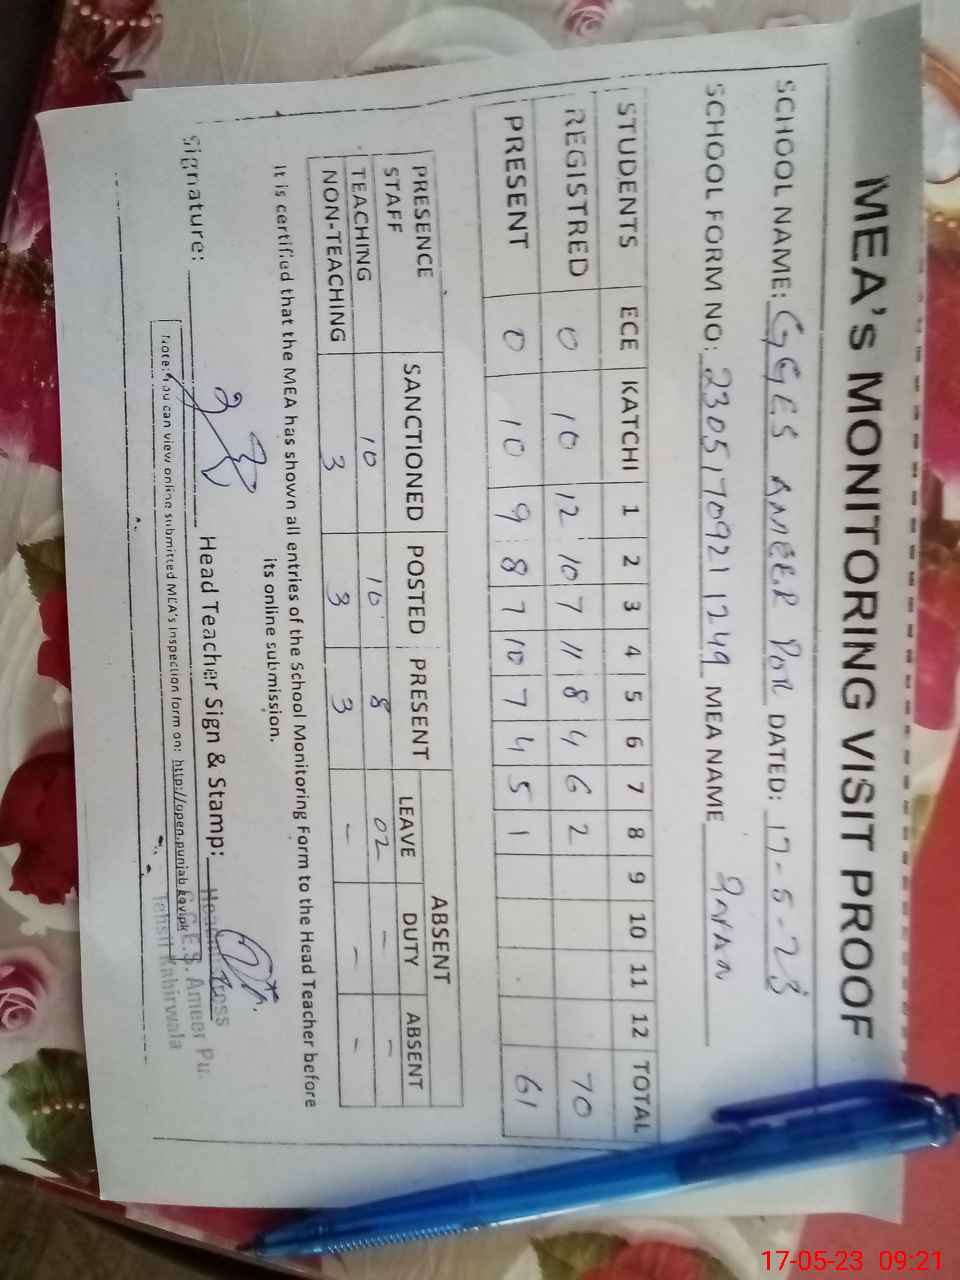 MEA's MONITORING VISIT PROOF
SCHOOL NAME: GGES AMEER POR DATED: 17-5-23
SCHOOL FORM NO: 23051709211249 MEA NAME
STUDENTS ECE KATCHI 1 2 3 4 5 6 7 8 9 10 11 12 TOTAL
REGISTRED 0 10 12 10 7 11 8 4 6 2 70
PRESENT 0 10 9 8 7 10 7 4 5 1 61
PRESENCE STAFF SANCTIONED POSTED PRESENT ABSENT
LEAVE DUTY ABSENT
TEACHING 10 10 8 02 - -
NON-TEACHING 3 3 3 - - -
It is certified that the MEA has shown all entries of the School Monitoring Form to the Head Teacher before
its online submission.
Signature: Head Teacher Sign & Stamp:
G.G.E.S. Ameer Pu
Tehsil Kabirwala
Note: You can view online submitted MEA's Inspection form on: http://open.punjab.gov.pk
17-05-23 09:21